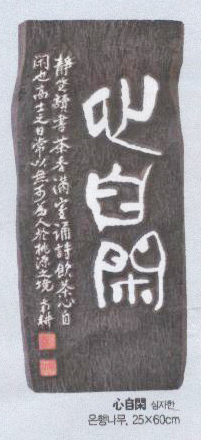 心自閑
靜坐讀書茶香滿室誦詩飲茶心自
閑也高士之日常以無可爲人於桃源之境 
心自閑 심자한
은행나무, 25×60cm